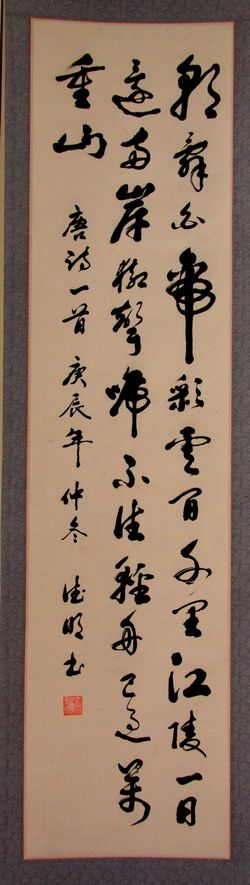 朝辭白帝彩雲間千里江陵一日
還兩岸猿聲啼不住輕舟已過萬
重山 唐詩一首 庚辰年仲冬 德明書